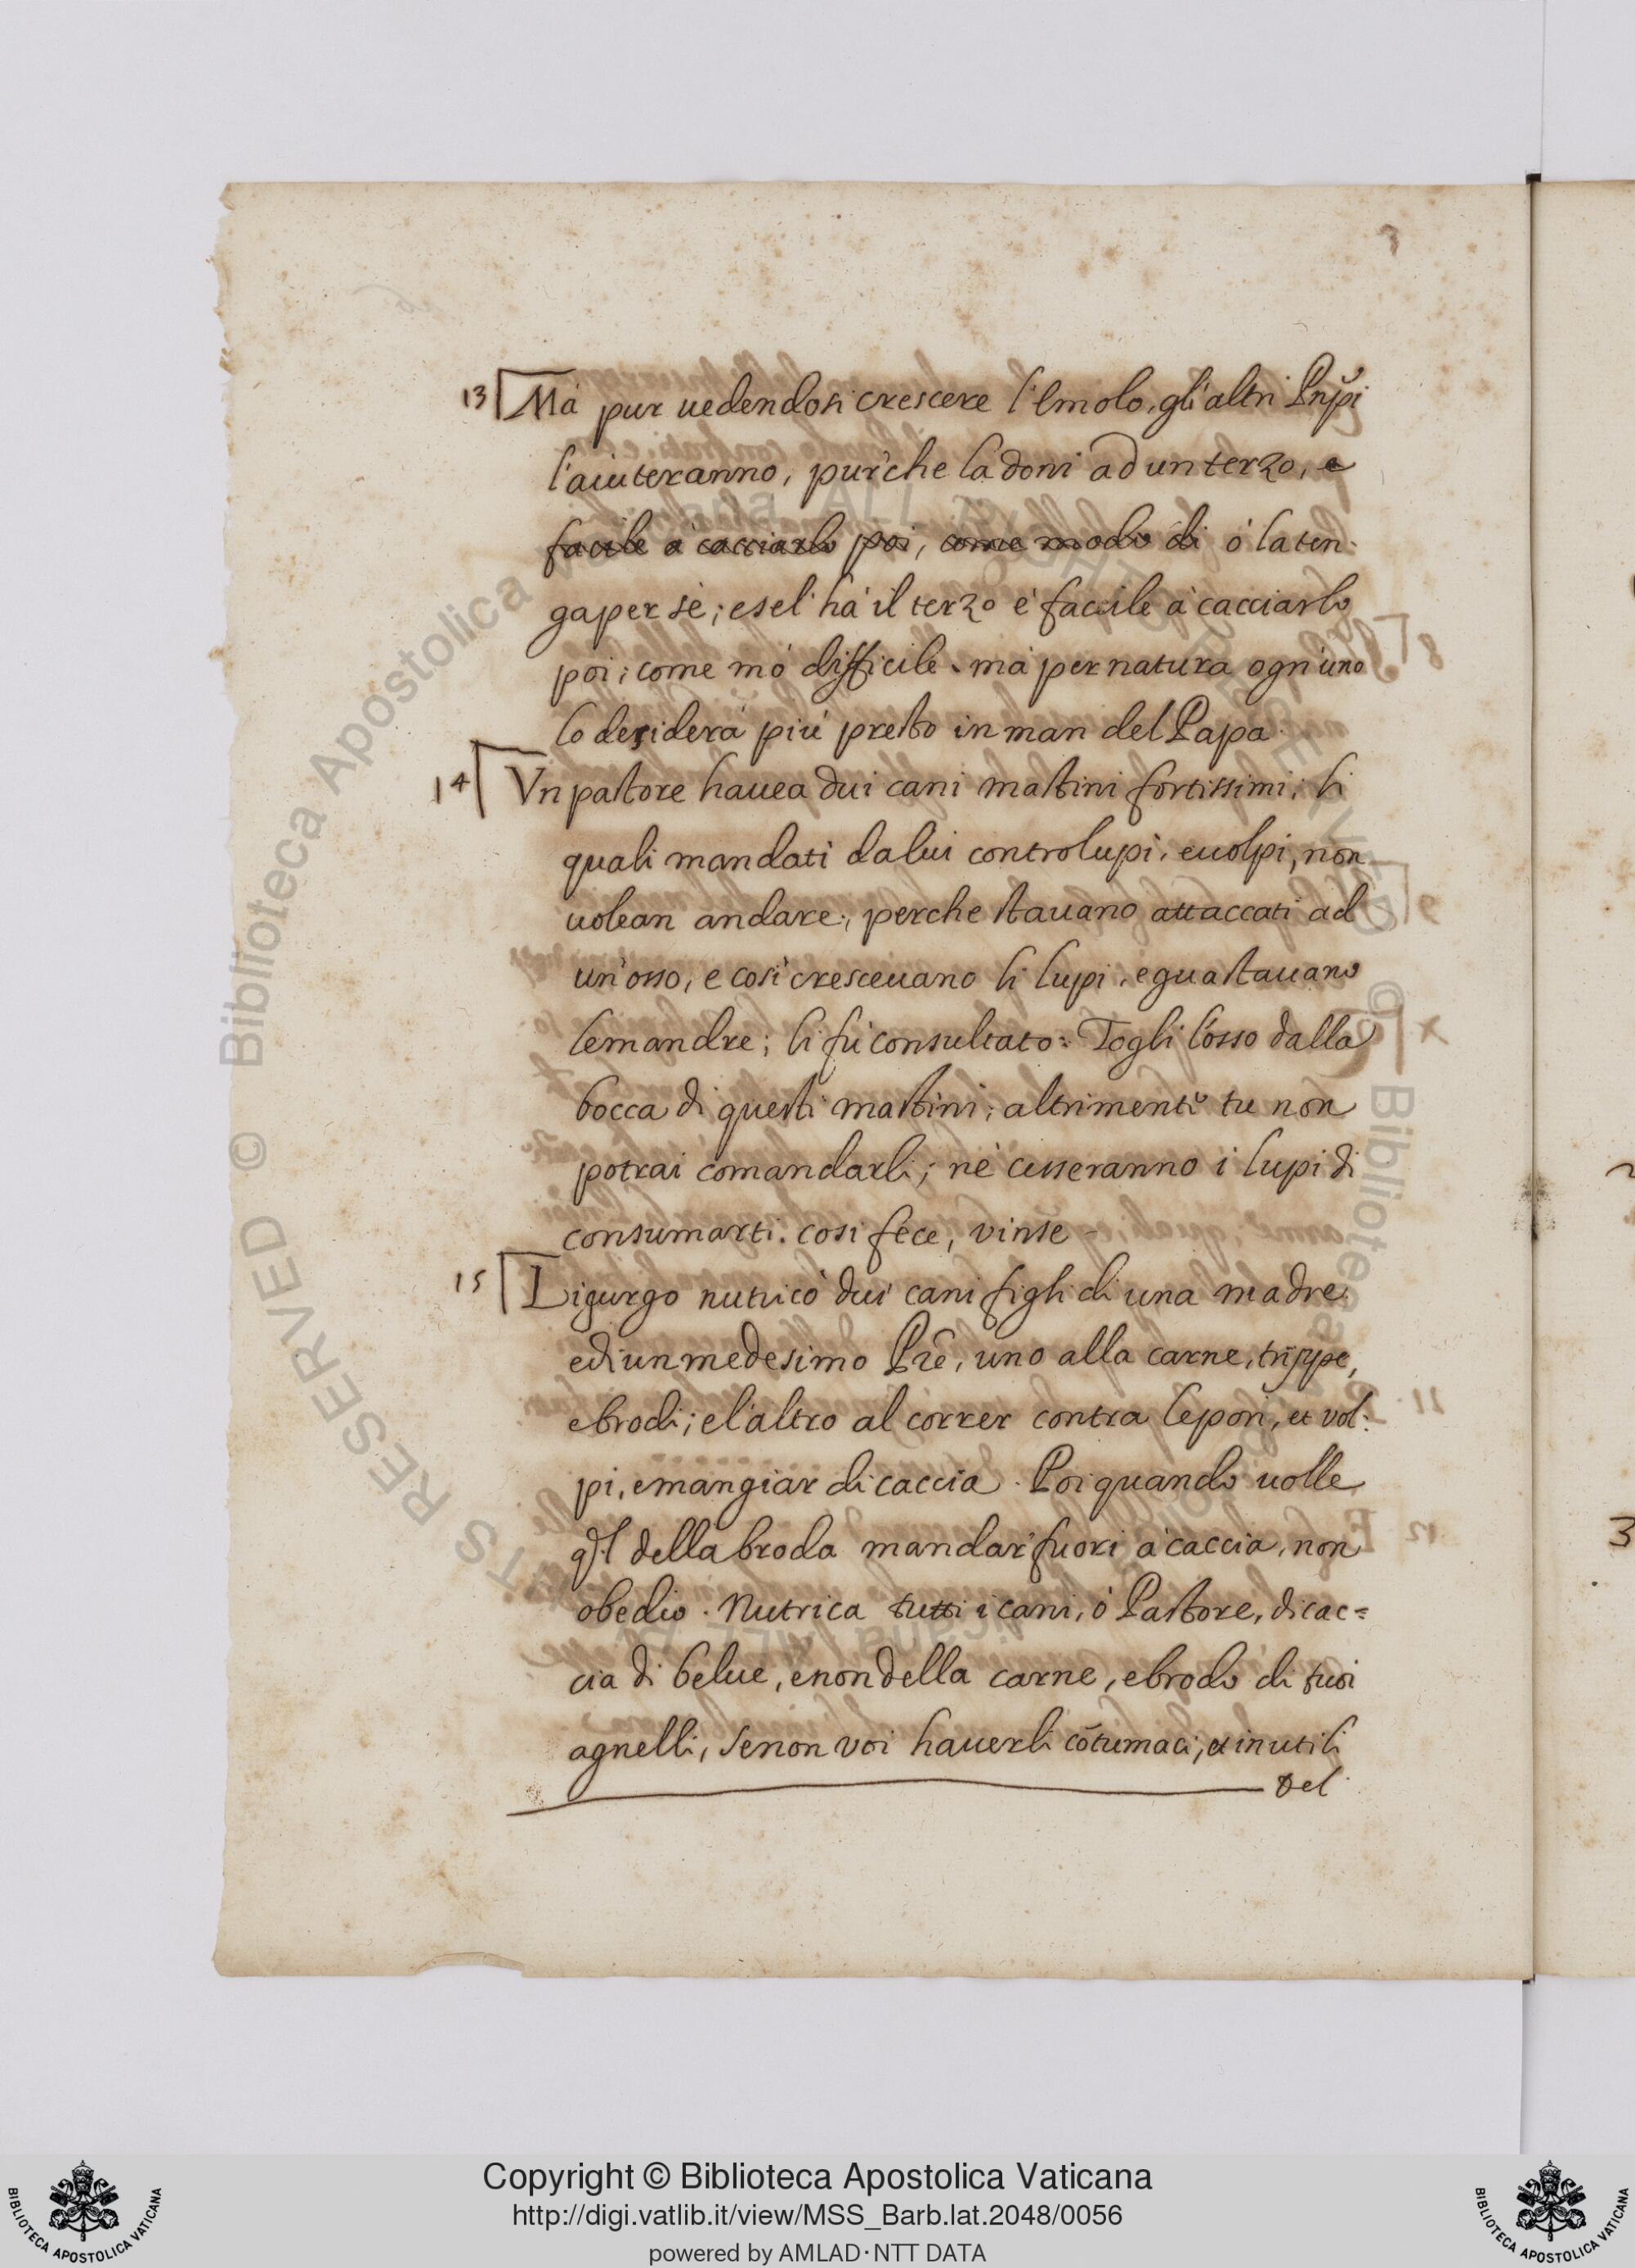 13 Mà pur uedendosi crescere l'Emolo, gli altri Prñpi
l'aiuteranno, pur'che la doni ad un terzo, e
facile à cacciarlo poi, come modo di ò la ten-
ga per sè; e se l'hà il terzo è faccile à cacciarlo
poi; come mò difficile. mà per natura ogn'uno
lo desiderà più presto in man del Papa.
14 Vn pastore hauea dui cani mastini fortissimi; li
quali mandati da lui contro lupi, e uolpi, non
uolean andare; perche stauano attaccati ad
un'osso, e così cresceuano li lupi, e guastauano
le mandre; li fù consultato: Togli l'osso dalla
bocca di questi mastini; altrimenti tu non
potrai comandarli; nè cesseranno i lupi di
consumarti. cosi fece, vinse
15 Ligurgo nutricò dui cani figli di una madre
e di un medesimo Prē, uno alla carne, trippe,
e brodi; e l'altro al correr contra lepori, et vol-
pi, e mangiar di caccia. Poi quando uolle
q̃l della broda mandar' fuori à caccia, non
obedio. Nutrica tutti i cani, ò Pastore, di cac=
cia di belue, e non della carne, e brodo di tuoi
agnelli, se non voi hauerli cōtumaci, et inutili
Del
3
BIBLIOTECA APOSTOLICA VATICANA
Copyright © Biblioteca Apostolica Vaticana
http://digi.vatlib.it/view/MSS_Barb.lat.2048/0056
powered by AMLAD·NTT DATA
BIBLIOTECA APOSTOLICA VATICANA